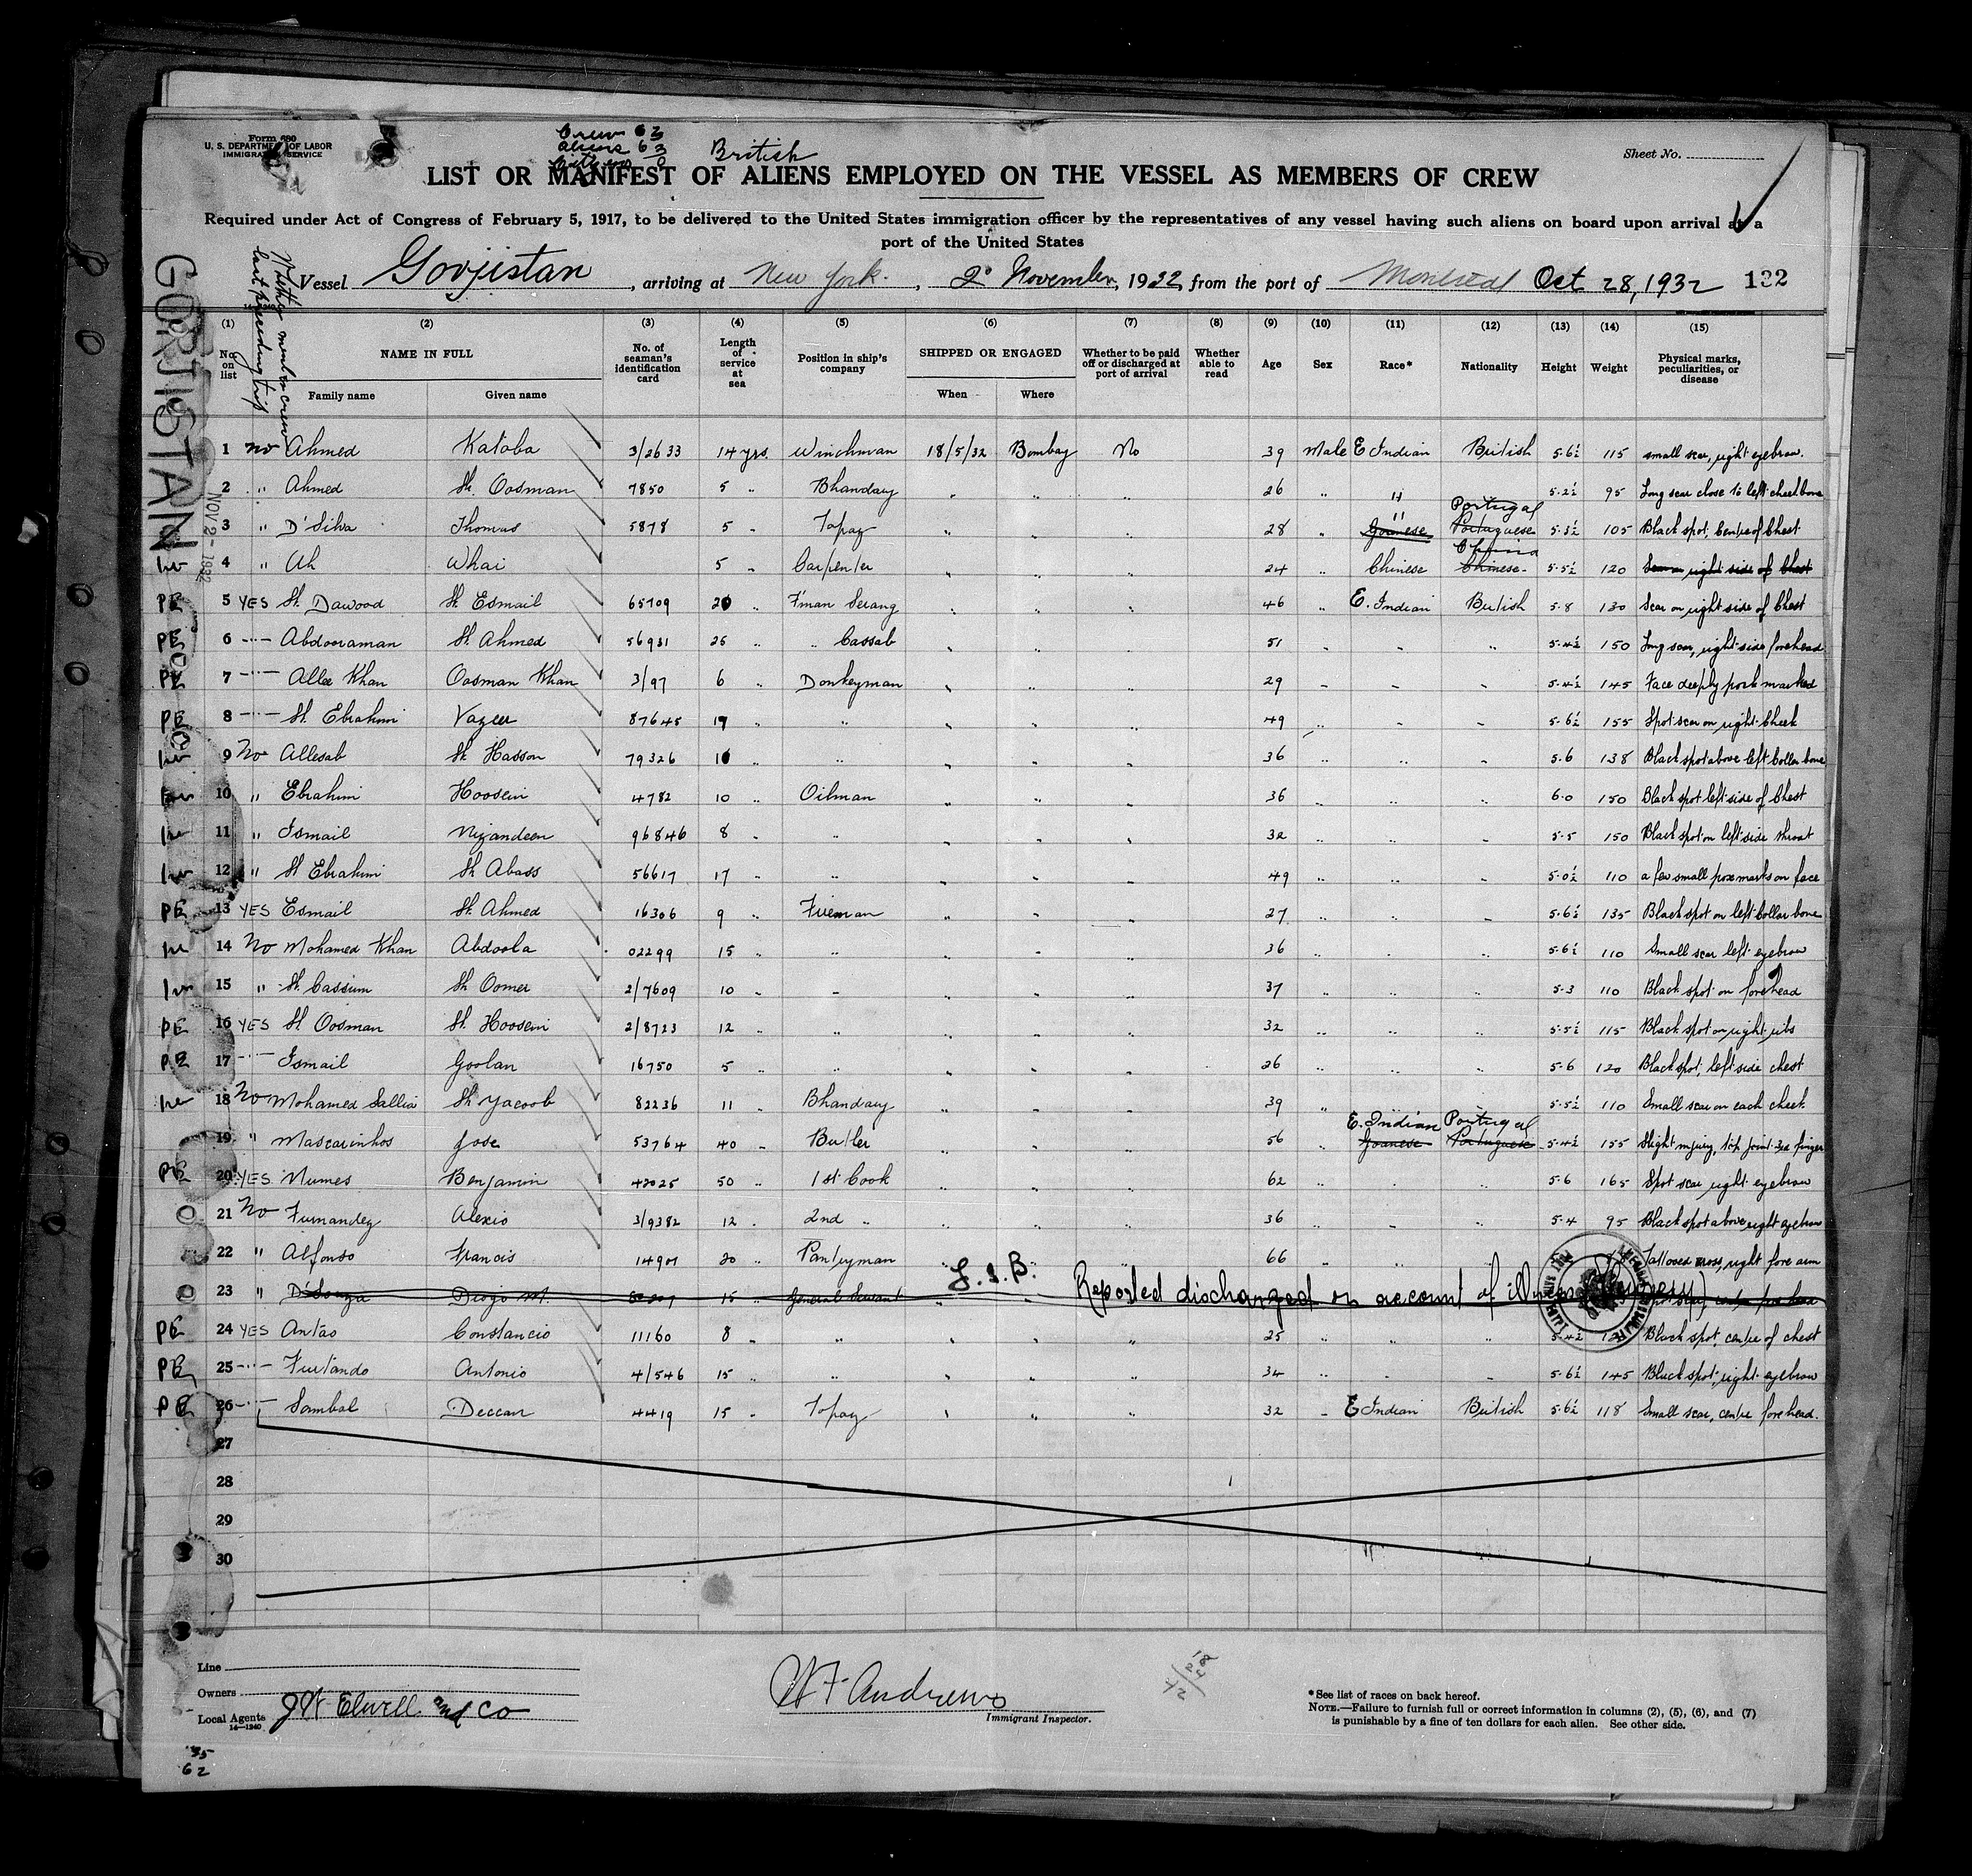 Form 680
U. S. DEPARTMENT OF LABOR
IMMIGRATION SERVICE
Crew 63
Aliens 63
British
Sheet No.
LIST OR MANIFEST OF ALIENS EMPLOYED ON THE VESSEL AS MEMBERS OF CREW
Required under Act of Congress of February 5, 1917, to be delivered to the United States immigration officer by the representatives of any vessel having such aliens on board upon arrival at a
port of the United States
Vessel Gorjistan, arriving at New York, 2 November, 1932, from the port of Montreal Oct 28, 1932 132
GORJISTAN
NOV 2 - 1932
Whether member crew last preceding trip
(1) (2) (3) (4) (5) (6) (7) (8) (9) (10) (11) (12) (13) (14) (15)
No. on list NAME IN FULL No. of seaman's identification card Length of service at sea Position in ship's company SHIPPED OR ENGAGED Whether to be paid off or discharged at port of arrival Whether able to read Age Sex Race* Nationality Height Weight Physical marks, peculiarities, or disease
Family name Given name When Where
1 No Ahmed Kataba 3/2633 14 yrs. Winchman 18/5/32 Bombay No 39 Male E Indian British 5·6½ 115 small scar, right eyebrow.
2 " Ahmed Sk. Oosman 7850 5 " Bhandary " " " 26 " " 5·2½ 95 Long scar close to left cheekbone
Portugal
3 " D'Silva Thomas 5878 5 " Topaz " " " 28 " " Goanese Portuguese 5·3½ 105 Black spot, centre of Chest
China
4 " Ah Whai 5 " Carpenter " " " 24 " Chinese Chinese 5·5½ 120 Scar on right side of Chest
PE 5 YES Sk. Dawood Sk. Esmail 65709 20 " F'man Serang " " " 46 " E. Indian British 5·8 130 Scar on right side of Chest
PE 6 " Abdooraman Sk. Ahmed 56931 25 " " Cassab " " " 51 " " " 5·4½ 150 Long scar, right side forehead
PE 7 " Allee Khan Oosman Khan 3/97 6 " Donkeyman " " " 29 " " " 5·4½ 145 Face deeply pock marked
PE 8 " Sk. Ebrahim Vazeer 87645 19 " " " " " 49 " " " 5·6½ 155 Spot scar on right Cheek
9 No Allesab Sk. Hasson 79326 10 " " " " " 36 " " " 5·6 138 Black spot above left Collar bone
10 " Ebrahim Hoosein 4782 10 " Oilman " " " 36 " " " 6·0 150 Black spot left side of Chest
11 " Ismail Nizandeen 96846 8 " " " " " 32 " " " 5·5 150 Black spot on left side throat
12 " Sk Ebrahim Sk Abass 56617 17 " " " " " 49 " " " 5·0½ 110 a few small pox marks on face
PE 13 YES Esmail Sk. Ahmed 16306 9 " Fireman " " " 27 " " " 5·6½ 135 Black spot on left Collar bone
14 No Mohamed Khan Abdoola 02299 15 " " " " " 36 " " " 5·6½ 110 Small scar left eyebrow
15 " Sk. Cassum Sk Oomer 2/7609 10 " " " " " 37 " " " 5·3 110 Black spot on forehead
PE 16 YES Sk Oosman Sk. Hoosein 2/8723 12 " " " " " 32 " " " 5·5½ 115 Black spot on right ribs
PE 17 " Ismail Goolan 16750 5 " " " " " 26 " " " 5·6 120 Black spot, left side chest
18 No Mohamed Sallia Sk Yacoob 82236 11 " Bhandary " " " 39 " " " 5·5½ 110 Small scar on each cheek
E. Indian Portugal
19 " Mascarinhos Jose 53764 40 " Butler " " " 56 " Goanese Portuguese 5·4½ 155 Slight injury, top joint 3rd finger
PE 20 YES Numes Benjamin 42025 50 " 1st Cook " " " 62 " " " 5·6 165 Spot scar right eyebrow
21 No Furnandez Alexio 3/9382 12 " 2nd " " " " 36 " " " 5·4 95 Black spot above right eyebrow
22 " Alfonso Francis 14901 20 " Pantryman 66 " " Tattooed cross, right fore arm
23 " D'Souza Diogo M. 15 " General Servant J. S. B. Reported discharged on account of illness
PE 24 YES Antao Constancio 11160 8 " " " " " 25 " " " 5·4½ Black spot, centre of chest
PE 25 " Furtando Antonio 4/546 15 " " " " " 34 " " " 5·6½ 145 Black spot, right eyebrow
PE 26 " Sambal Deccan 4419 15 " Topaz " " " 32 " E Indian British 5·6½ 118 Small scar, centre forehead.
27
28
29
30
Line
Owners
Local Agents J W Elwell and Co
14—1240
W F Andrews
Immigrant Inspector.
*See list of races on back hereof.
NOTE.—Failure to furnish full or correct information in columns (2), (5), (6), and (7)
is punishable by a fine of ten dollars for each alien. See other side.
35
62